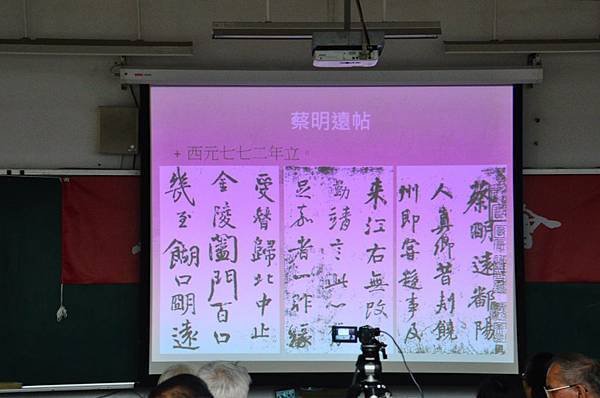 蔡明遠帖
+ 西元七七二年立。
蔡明遠鄱陽
人真卿昔刺饒
州即嘗趨事及
來江右無改
勤靖言此
是求者一昨緣
受替歸北中止
金陵闔門百口
幾至餬口明遠
會